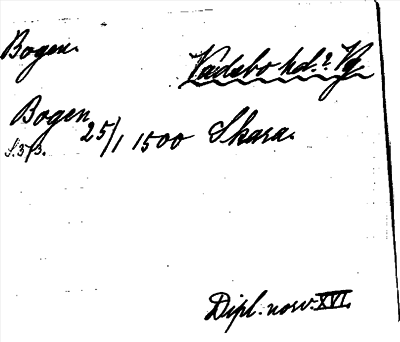 Bogen.
Vadsbo hd.? Vg
Bogen 25/1 1500 Skara.
s. 373.
Dipl. norv. XVI.